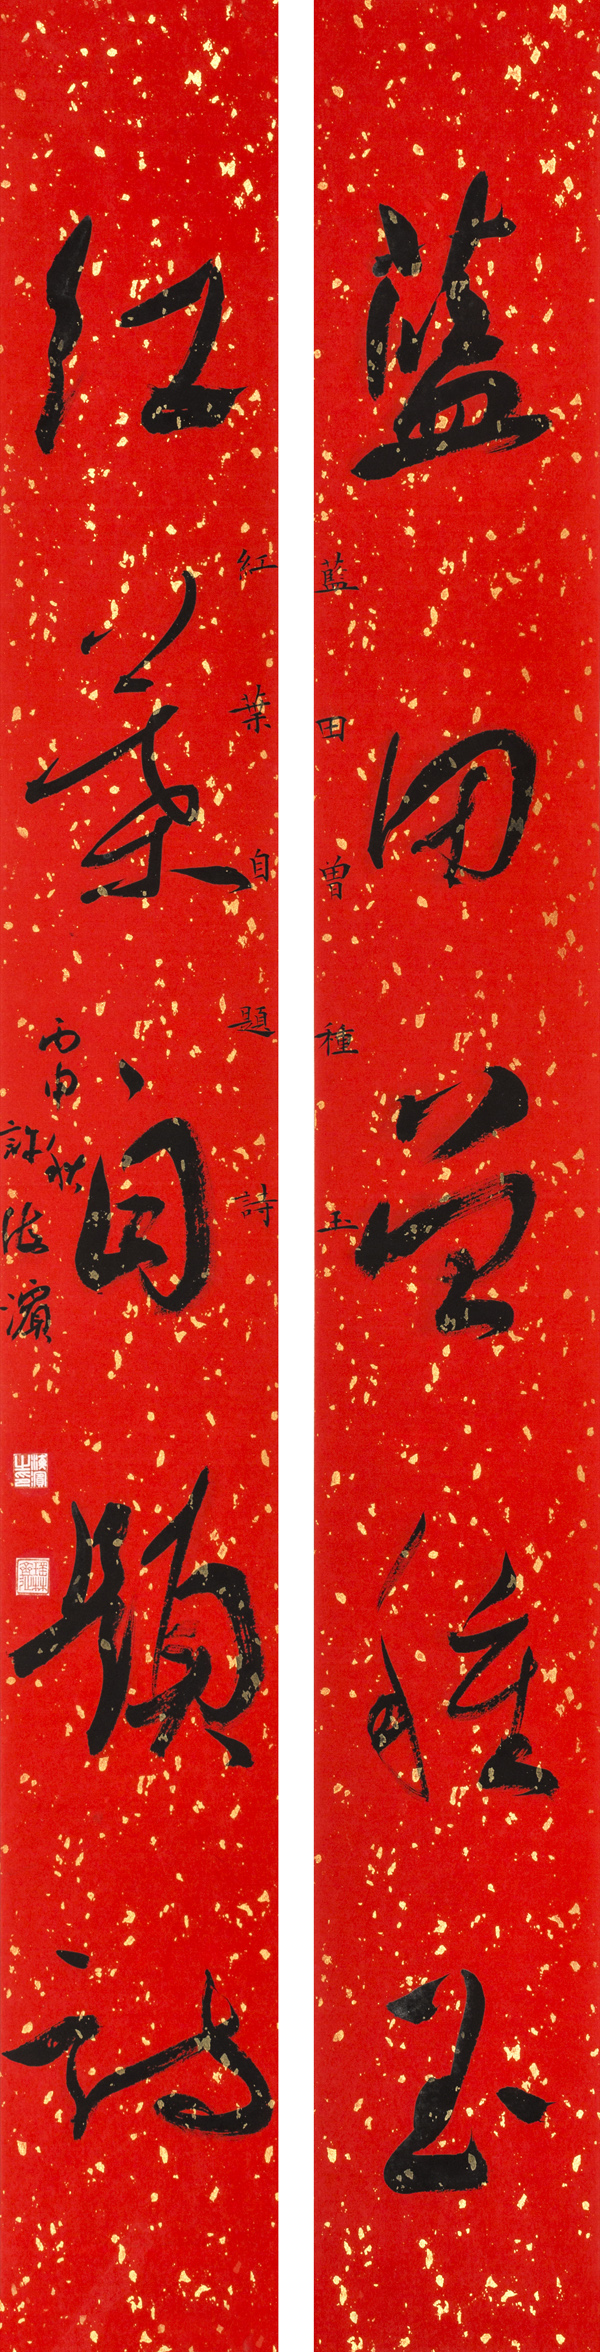 藍田曽種玉
藍田曽種玉
紅葉自題詩
紅葉自題詩
丙申秋
許海濱